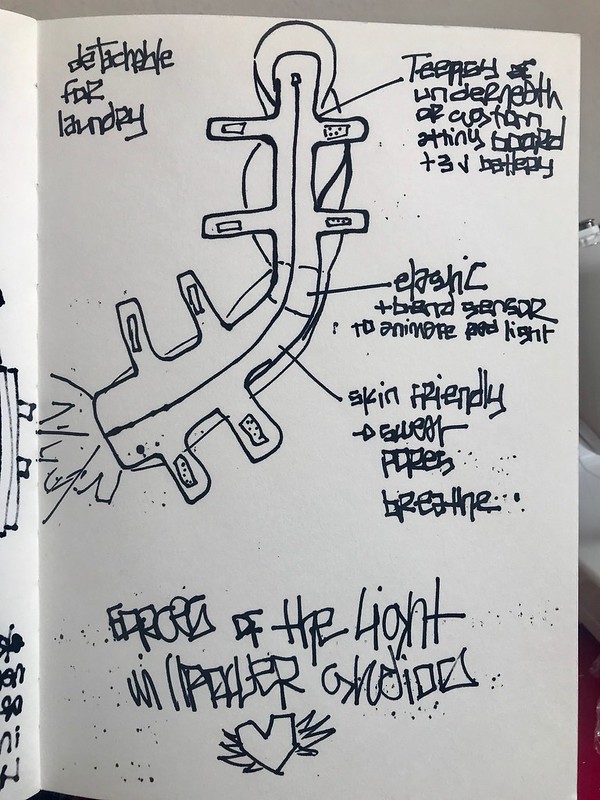 detachable
for
laundry
Teensy
underneath
or custom
attiny board
+ 3V battery
elastic
+ bend sensor
to animate led light
skin friendly
→ sweat
pores
breathe...
Forces of the Light